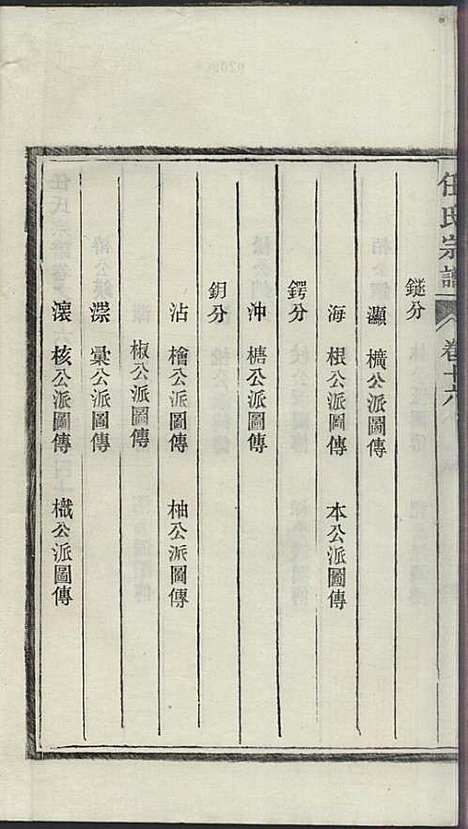 任氏宗譜 卷十六
鐩分
灝 櫎公派圖傳
海 根公派圖傳 本公派圖傳
鍔分
沖 榶公派圖傳
鈅分
沾 檜公派圖傳 柚公派圖傳
椒公派圖傳
漴 橐公派圖傳
瀼 核公派圖傳 檝公派圖傳